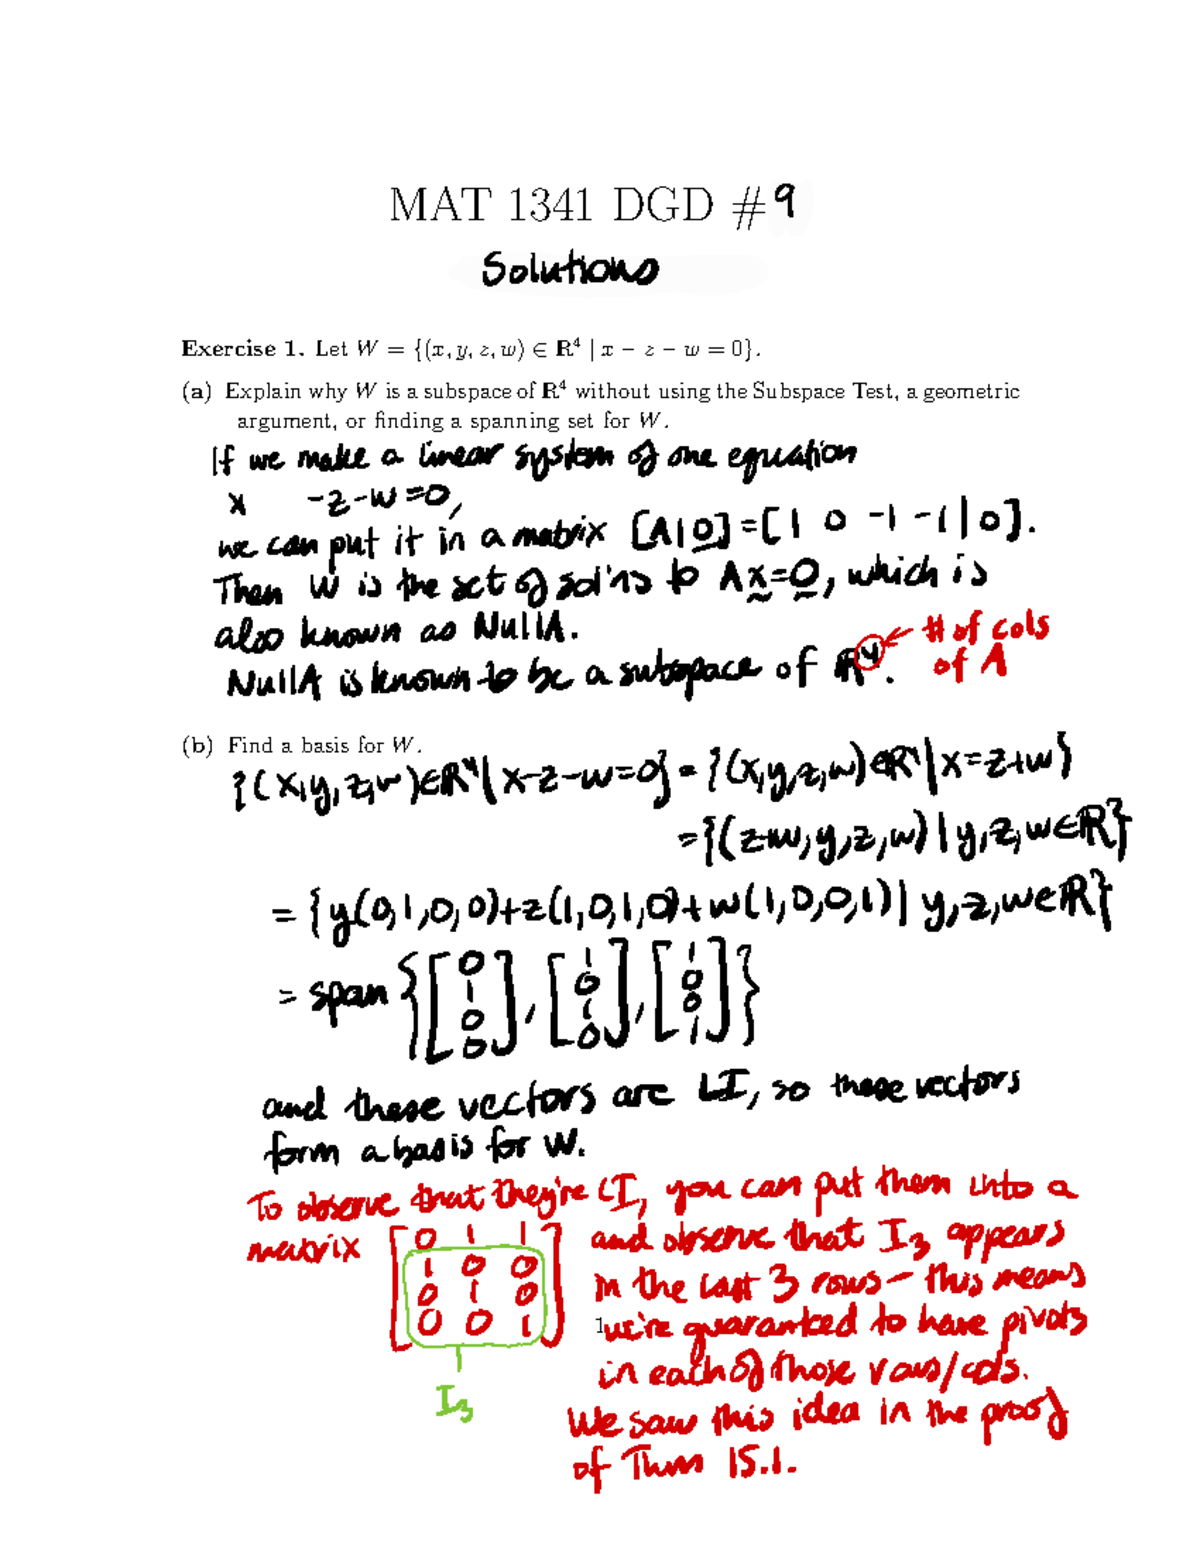 MAT 1341 DGD #9
Solutions
Exercise 1. Let W = {(x, y, z, w) ∈ R⁴ | x − z − w = 0}.
(a) Explain why W is a subspace of R⁴ without using the Subspace Test, a geometric
argument, or finding a spanning set for W.
If we make a linear system of one equation
x -z-w=0,
we can put it in a matrix [A|0]=[1 0 -1 -1|0].
Then W is the set of sol'ns to Ax=0, which is
also known as NullA.
NullA is known to be a subspace of R⁴. ← # of cols
of A
(b) Find a basis for W.
{(x,y,z,w)∈R⁴| x-z-w=0} = {(x,y,z,w)∈R⁴|x=z+w}
={(z+w,y,z,w)|y,z,w∈R}
= {y(0,1,0,0)+z(1,0,1,0)+w(1,0,0,1)| y,z,w∈R}
= span {[0 1 0 0], [1 0 1 0], [1 0 0 1]}
and these vectors are LI, so these vectors
form a basis for W.
To observe that they're LI, you can put them into a
matrix [0 1 1 and observe that I₃ appears
1 0 0
0 1 0 in the last 3 rows - this means
0 0 1] we're guaranteed to have pivots
1
in each of those rows/cols.
I₃
We saw this idea in the proof
of Thm 15.1.